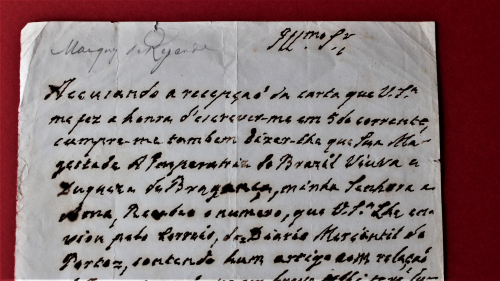 Marquez de Rezende
Illmo Sr.
Accusando a recepçaõ da carta que V. Sª
me fez a honra d'escrever-me em 5 do corrente,
cumpre-me tambem dizer-lhe que Sua Ma-
gestade A Imperatriz do Brazil Viuva e
Duqueza de Bragança, minha Senhora e
Ama, Recebeo o numero, que V. Sª Lhe en-
viou pelo Correio, do Diario Mercantil do
Porto, contendo hum artigo com relação